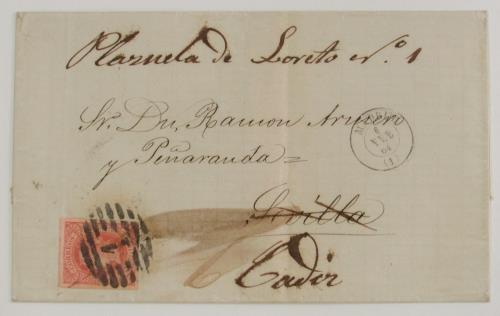 Plazuela de Loreto nº 1
Sr. Dn. Ramon Armero
y Peñaranda =
Sevilla
Cadiz
6
(1)
1